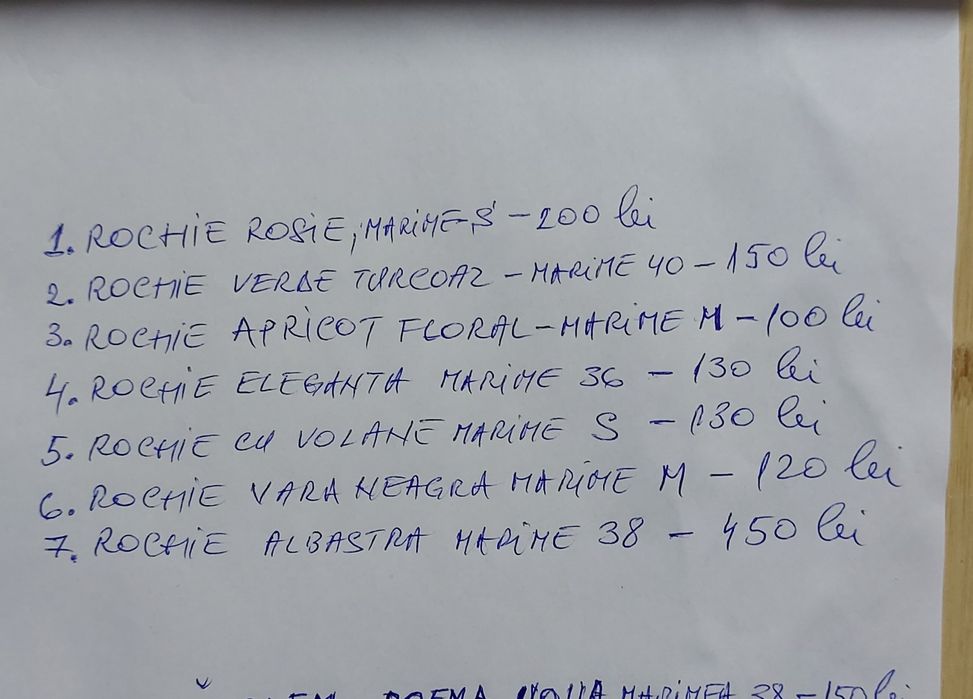 1. ROCHIE ROSIE, MARIME S - 200 lei
2. ROCHIE VERDE TURCOAZ - MARIME 40 - 150 lei
3. ROCHIE APRICOT FLORAL - MARIME M - 100 lei
4. ROCHIE ELEGANTA MARIME 36 - 130 lei
5. ROCHIE CU VOLANE MARIME S - 130 lei
6. ROCHIE VARA NEAGRA MARIME M - 120 lei
7. ROCHIE ALBASTRA MARIME 38 - 450 lei
POEMA NOUA MARIMEA 38 - 150 lei